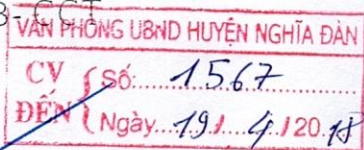 3-CCT
VĂN PHÒNG UBND HUYỆN NGHĨA ĐÀN
CV ĐẾN { Số: 1567
Ngày 19 / 4 / 20 18